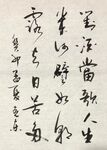 對酒當歌人生
幾何譬如朝
露去日苦多
癸卯孟夏